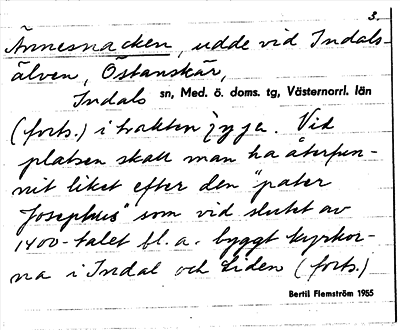 3.
Ånnesnacken, udde vid Indals-
älven, Östanskär,
Indals sn, Med. ö. doms. tg, Västernorrl. län
(forts.) i trakten ej ja. Vid
platsen skall man ha återfun-
nit liket efter den "pater
Josephus" som vid slutet av
1400-talet bl.a. byggt kyrkor-
na i Indal och Liden (forts.)
Bertil Flemström 1965